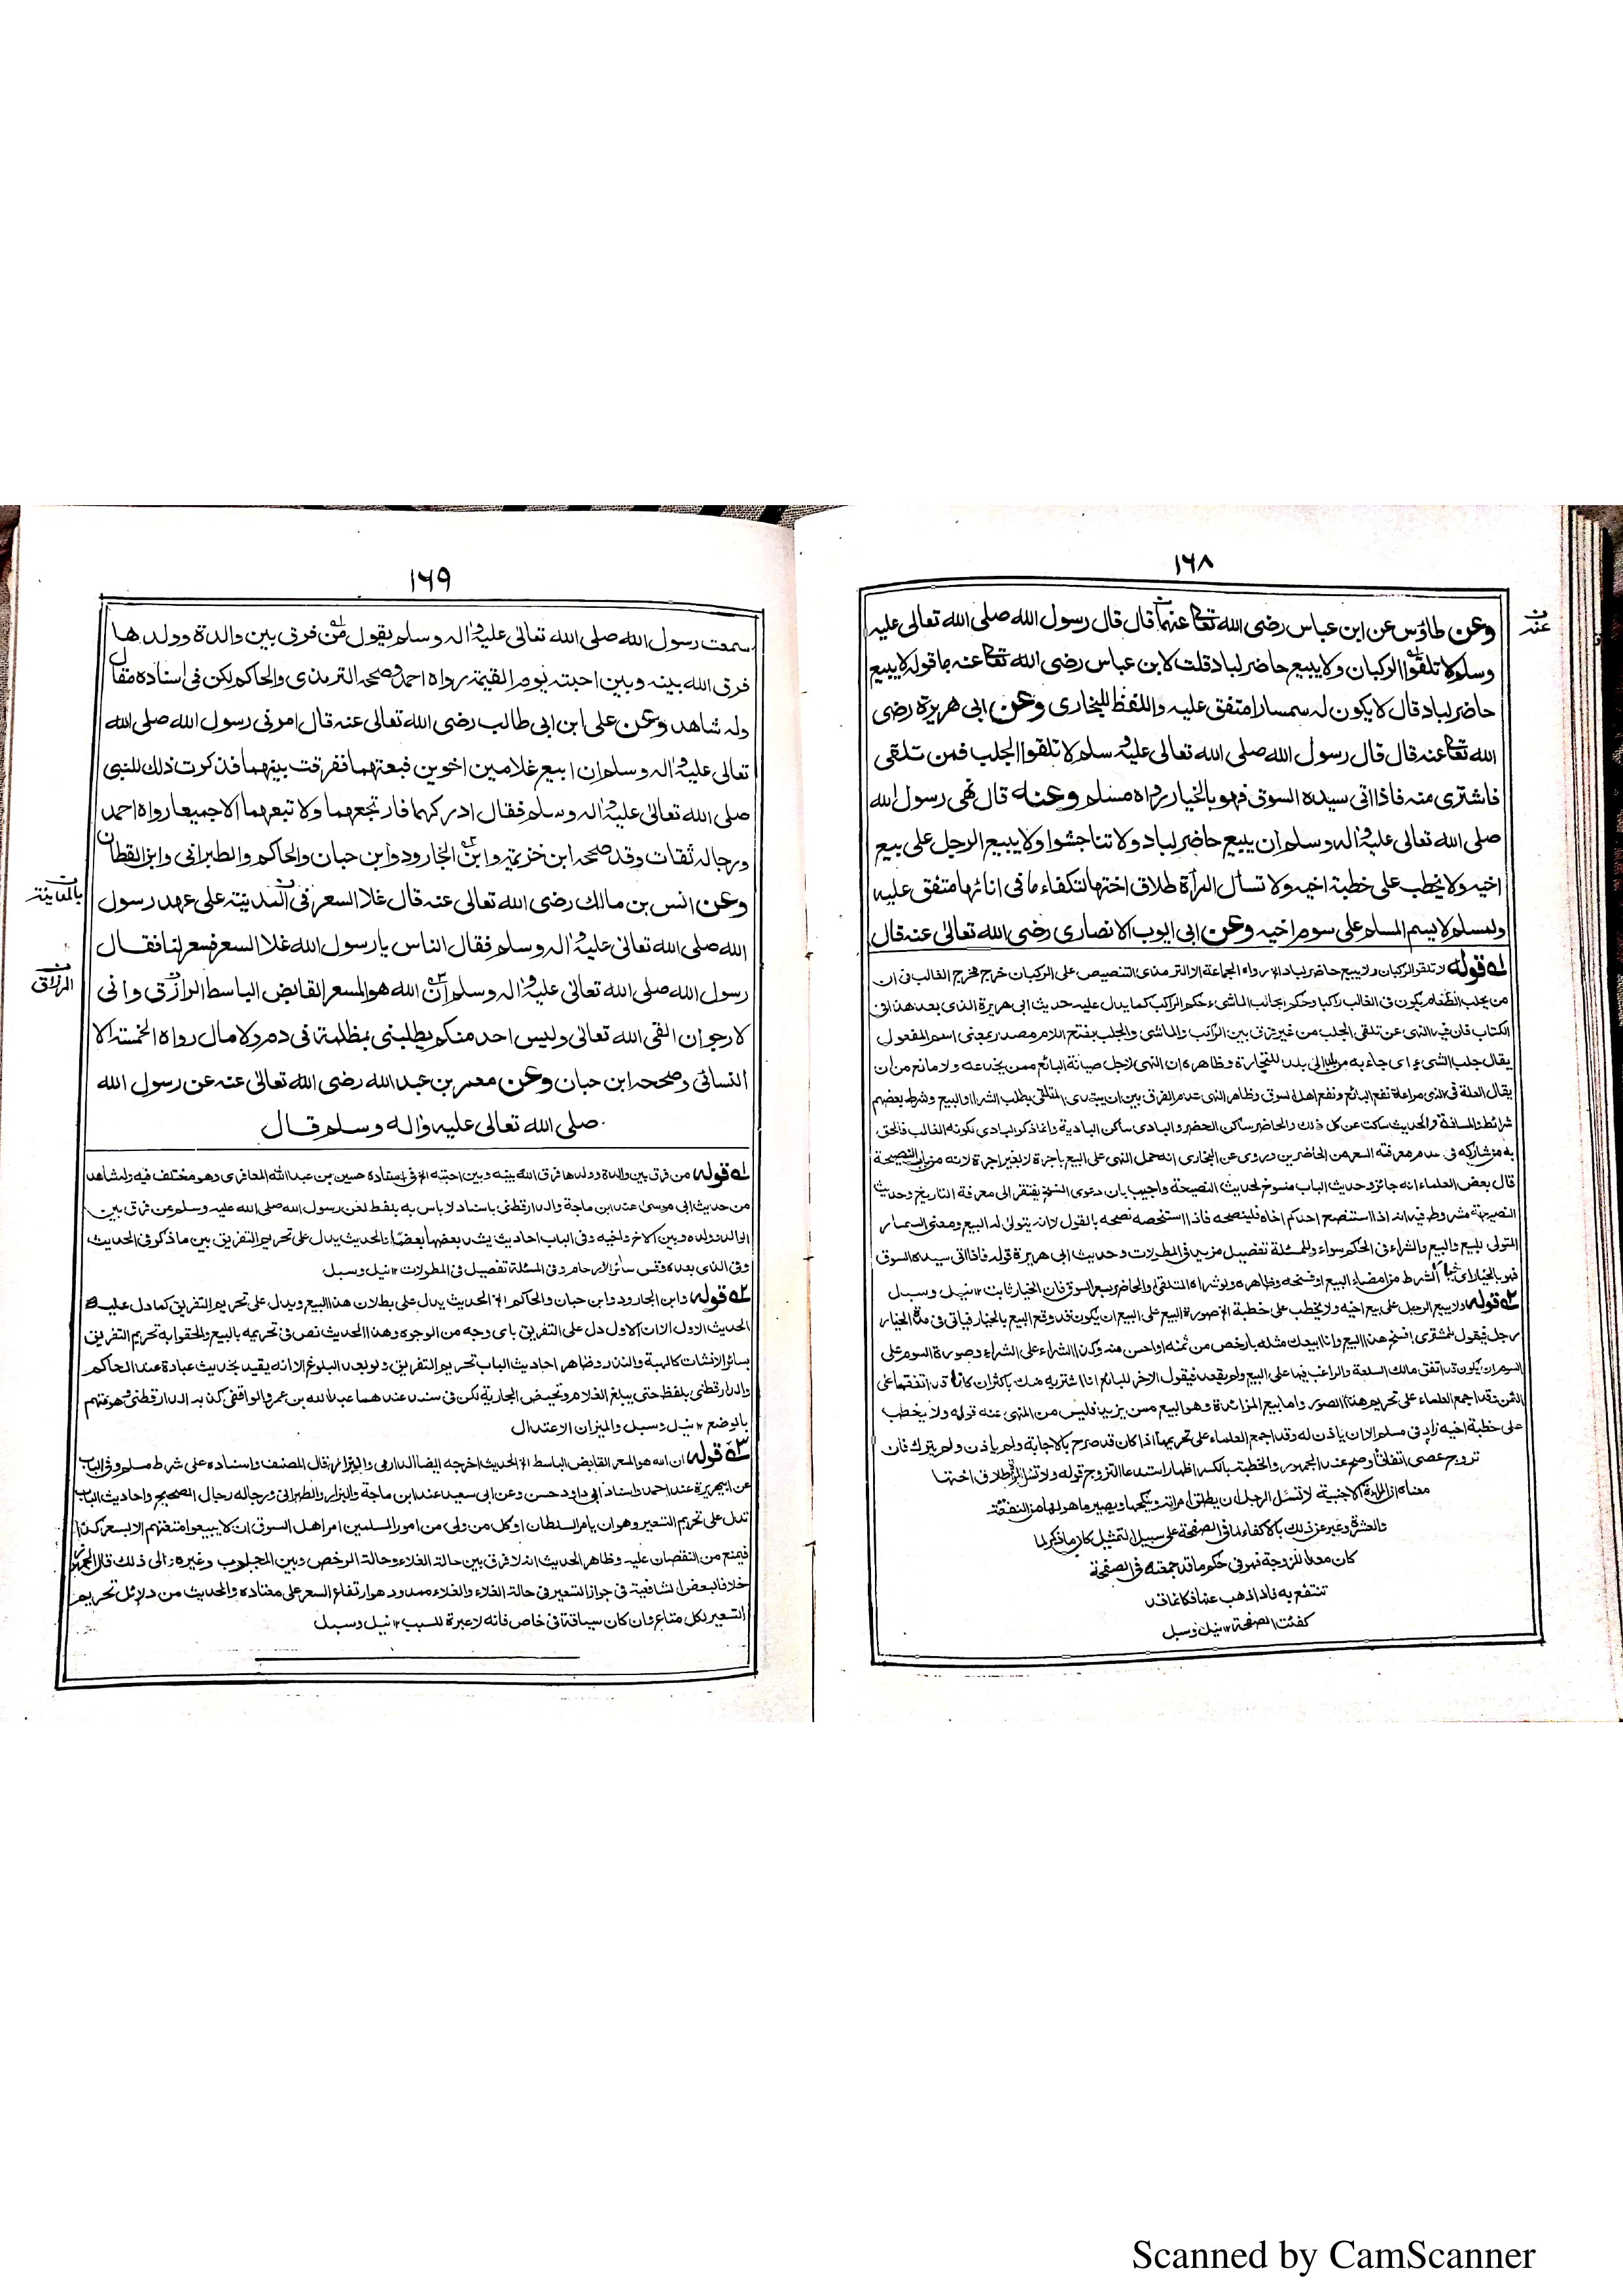 ١٦٨
وعن طاؤس عن ابن عباس رضی الله تعالى عنهما قال قال رسول الله صلى الله تعالى عليه
وسلم لا تلقوا الركبان ولا يبيع حاضر لباد قلت لابن عباس رضی الله تعالى عنه ما قوله لا يبيع
حاضر لباد قال لا يكون له سمسارا متفق عليه واللفظ للبخاری وعن ابی هريرة رضی
الله تعالى عنه قال قال رسول الله صلى الله تعالى عليه وسلم لا تلقوا الجلب فمن تلقی
فاشتری منه فاذا اتی سيده السوق فهو بالخيار رواه مسلم وعنه قال نهی رسول الله
صلى الله تعالى عليه واله وسلم ان يبيع حاضر لباد ولا تناجشوا ولا يبيع الرجل على بيع
اخيه ولا يخطب على خطبة اخيه ولا تسأل المرأة طلاق اختها لتكفاء ما فی انائها متفق عليه
ولمسلم لا يسم المسلم على سوم اخيه وعن ابی ايوب الانصاری رضی الله تعالى عنه قال
عنه ن
١ قوله لا تلقوا الركبان ولا يبيع حاضر لباد الخ رواه الجماعة الا الترمذی التنصيص على الركبان خرج مخرج الغالب فی ان
من يجلب الطعام يكون فی الغالب راكبا وحكم الجالب الماشی حكم الراكب كما يدل عليه حديث ابی هريرة الذی بعد هذا فی
الكتاب فان فيه النهی عن تلقی الجلب من غير فرق بين الراكب والماشی والجلب بفتح اللام مصدر بمعنی اسم المفعول
يقال جلب الشیء ای جاء به من بلد الى بلد للتجارة وظاهره ان النهی لاجل صيانة البائع ممن يخدعه ولا مانع من ان
يقال العلة فی النهی مراعاة نفع البائع ونفع اهل السوق وظاهر النهی عدم الفرق بين ان يبتدی المتلقی بطلب الشراء والبيع وشرط بعضهم
شرائط والمسافة والحديث ساكت عن كل ذلك والحاضر ساكن الحضر والبادی ساكن البادية وانما ذكر البادی لكونه الغالب فالحق
به من شاركه فی عدم معرفة السعر من الحاضرين وروی عن البخاری انه حمل النهی على البيع باجرة لا بغير اجرة لانه من باب النصيحة
قال بعض العلماء انه جائز وحديث الباب منسوخ لحديث النصيحة واجيب بان دعوی النسخ يفتقر الى معرفة التاريخ وحديث
النصيحة مشروط فيه انه اذا استنصح احدكم اخاه فلينصحه فاذا استنصحه نصحه بالقول لا انه يتولی له البيع ومعنی السمسار
المتولی للبيع والبيع والشراء فی الحكم سواء وللمسئلة تفصيل مزيد فی المطولات وحديث ابی هريرة قوله فاذا اتی سيده السوق
فهو بالخيار ای الشرط من امضاء البيع او فسخه وظاهره ولو شراه المتلقی والحاضر بسعر السوق فان الخيار ثابت ١٢ نيل وسبل
٢ قوله ولا يبيع الرجل على بيع اخيه ولا يخطب على خطبة الخ صورة البيع على البيع ان يكون قد وقع البيع بالخيار فياتی فی مدة الخيار
رجل فيقول للمشتری افسخ هذا البيع وانا ابيعك مثله بارخص من ثمنه او احسن منه وكذا الشراء على الشراء وصورة السوم على
السوم ان يكون قد اتفق مالك السلعة والراغب فيها على البيع ولم يعقد فيقول الاخر للبائع انا اشتريه منك باكثر ان كانا قد اتفقا على
الثمن وقد اجمع العلماء على تحريم هذا الصور واما بيع المزائدة وهو البيع ممن يزيد فليس من المنهی عنه قوله ولا يخطب
على خطبة اخيه زاد فی مسلم الا ان ياذن له وقد اجمع العلماء على تحريمها اذا كان قد صرح بالاجابة ولم ياذن ولم يترك فان
تزوج عصی اتفاقا وصح عند الجمهور والخطبة بالكسر اظهار استدعاء التزوج قوله ولا تسئل المرأة طلاق اختها
معناه ان المرأة الاجنبية لا تسئل الرجل ان يطلق امراته وينكحها ويصير ما هو لها من النفقة
والعشرة وغير عن ذلك بالاكفاء لما فی الصفحة على سبيل التمثيل كان ما ذكر لما
كان معدا للزوجة فهو فی حكم ما قد جمعته فی الصفحة
تنتفع به فاذا ذهب عنها فكانما قد
كفئت الصفحة ١٢ نيل وسبل
١٦٩
سمعت رسول الله صلى الله تعالى عليه واله وسلم يقول من فرق بين والدة وولدها
فرق الله بينه وبين احبته يوم القيمة رواه احمد وصححه الترمذی والحاكم لكن فی اسناده مقال
وله شاهد وعن علی ابن ابی طالب رضی الله تعالى عنه قال امرنی رسول الله صلى الله
تعالى عليه واله وسلم ان ابيع غلامين اخوين فبعتهما ففرقت بينهما فذكرت ذلك للنبی
صلى الله تعالى عليه واله وسلم فقال ادركهما فارتجعهما ولا تبعهما الا جميعا رواه احمد
ورجاله ثقات وقد صححه ابن خزيمة وابن الجارود وابن حبان والحاكم والطبرانی وابن القطان
وعن انس بن مالك رضی الله تعالى عنه قال غلا السعر فی المدينة على عهد رسول
الله صلى الله تعالى عليه واله وسلم فقال الناس يا رسول الله غلا السعر فسعر لنا فقال
رسول الله صلى الله تعالى عليه واله وسلم ان الله هو المسعر القابض الباسط الرازق وانی
لارجو ان القی الله تعالى وليس احد منكم يطلبنی بمظلمة فی دم ولا مال رواه الخمسة الا
النسائی وصححه ابن حبان وعن معمر بن عبد الله رضی الله تعالى عنه عن رسول الله
صلى الله تعالى عليه واله وسلم قال
بالمدينة ن
الرزاق ن
١ قوله من فرق بين والدة وولدها فرق الله بينه وبين احبته الخ فی اسناده حسين بن عبد الله المعافری وهو مختلف فيه وله شاهد
من حديث ابی موسی عند ابن ماجة والدارقطنی باسناد لا باس به بلفظ لعن رسول الله صلى الله عليه وسلم من فرق بين
الوالد وولده وبين الاخ واخيه وفی الباب احاديث يشد بعضها بعضا والحديث يدل على تحريم التفريق بين ما ذكر فی الحديث
وفی الذی بعده وقس سائر الارحام وفی المسئلة تفصيل فی المطولات ١٢ نيل وسبل
٢ قوله وابن الجارود وابن حبان والحاكم الخ الحديث يدل على بطلان هذا البيع ويدل على تحريم التفريق كما دل عليه
الحديث الاول الا ان الاول دل على التفريق بای وجه من الوجوه وهذا الحديث نص فی تحريمه بالبيع والحقوا به تحريم التفريق
بسائر الانشات كالهبة والنذر وظاهر احاديث الباب تحريم التفريق ولو بعد البلوغ الا انه يقيد بحديث عبادة عند الحاكم
والدارقطنی بلفظ حتی يبلغ الغلام وتحيض الجارية لكن فی سنده عندهما عبد الله بن عمرو الواقفی كذبه الدارقطنی
بالوضع ١٢ نيل وسبل والميزان الاعتدال
٣ قوله ان الله هو المسعر القابض الباسط الخ الحديث اخرجه ايضا الدارمی والبزار قال المصنف واسناده على شرط مسلم وفی الباب
عن ابی هريرة عند احمد واسناد ابی داود حسن وعن ابی سعيد عند ابن ماجة والبزار والطبرانی ورجاله رجال الصحيح واحاديث الباب
تدل على تحريم التسعير وهو ان يامر السلطان او كل من ولی من امور المسلمين امر اهل السوق ان لا يبيعوا امتعتهم الا بسعر كذا
فيمنع من النقصان عليه وظاهر الحديث انه لا فرق بين حالة الغلاء وحالة الرخص وبين المجلوب وغيره والى ذلك قال الجمهور
خلافا لبعض الشافعية فی جواز التسعير فی حالة الغلاء والغلاء ممدود هو ارتفاع السعر على معتاده والحديث من دلائل تحريم
التسعير لكل متاع وان كان سياقه فی خاص فانه لا عبرة للسبب ١٢ نيل وسبل
Scanned by CamScanner